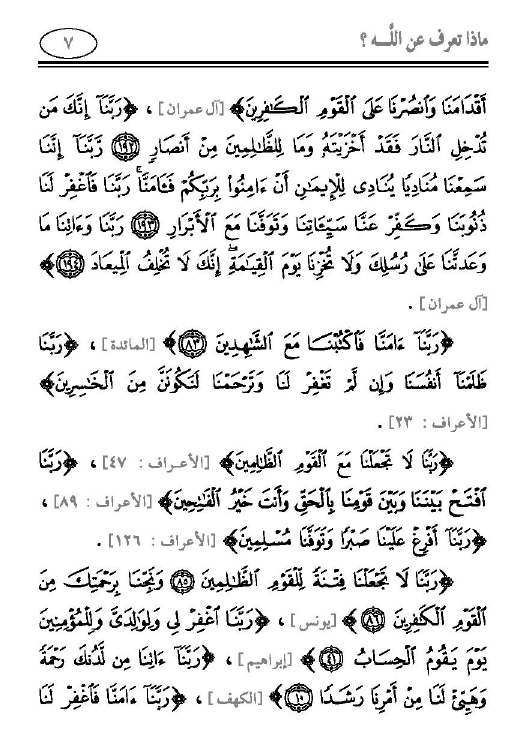 ماذا تعرف عن اللَّـه ؟
٧
أَقْدَامَنَا وَانصُرْنَا عَلَى الْقَوْمِ الْكَافِرِينَ﴾ [آل عمران] ، ﴿رَبَّنَا إِنَّكَ مَن
تُدْخِلِ النَّارَ فَقَدْ أَخْزَيْتَهُ وَمَا لِلظَّالِمِينَ مِنْ أَنصَارٍ ﴿١٩٢﴾ رَّبَّنَا إِنَّنَا
سَمِعْنَا مُنَادِيًا يُنَادِي لِلْإِيمَانِ أَنْ ءَامِنُوا بِرَبِّكُمْ فَـَٔامَنَّا ۚ رَبَّنَا فَاغْفِرْ لَنَا
ذُنُوبَنَا وَكَفِّرْ عَنَّا سَيِّـَٔاتِنَا وَتَوَفَّنَا مَعَ الْأَبْرَارِ ﴿١٩٣﴾ رَبَّنَا وَءَاتِنَا مَا
وَعَدتَّنَا عَلَى رُسُلِكَ وَلَا تُخْزِنَا يَوْمَ الْقِيَامَةِ ۗ إِنَّكَ لَا تُخْلِفُ الْمِيعَادَ ﴿١٩٤﴾﴾
[آل عمران] .
﴿رَبَّنَا ءَامَنَّا فَاكْتُبْنَا مَعَ الشَّاهِدِينَ ﴿٨٣﴾﴾ [المائدة] ، ﴿رَبَّنَا
ظَلَمْنَا أَنفُسَنَا وَإِن لَّمْ تَغْفِرْ لَنَا وَتَرْحَمْنَا لَنَكُونَنَّ مِنَ الْخَاسِرِينَ﴾
[الأعراف : ٢٣] .
﴿رَبَّنَا لَا تَجْعَلْنَا مَعَ الْقَوْمِ الظَّالِمِينَ﴾ [الأعراف : ٤٧] ، ﴿رَبَّنَا
افْتَحْ بَيْنَنَا وَبَيْنَ قَوْمِنَا بِالْحَقِّ وَأَنتَ خَيْرُ الْفَاتِحِينَ﴾ [الأعراف : ٨٩] ،
﴿رَبَّنَا أَفْرِغْ عَلَيْنَا صَبْرًا وَتَوَفَّنَا مُسْلِمِينَ﴾ [الأعراف : ١٢٦] .
﴿رَبَّنَا لَا تَجْعَلْنَا فِتْنَةً لِّلْقَوْمِ الظَّالِمِينَ ﴿٨٥﴾ وَنَجِّنَا بِرَحْمَتِكَ مِنَ
الْقَوْمِ الْكَافِرِينَ ﴿٨٦﴾﴾ [يونس] ، ﴿رَبَّنَا اغْفِرْ لِي وَلِوَالِدَيَّ وَلِلْمُؤْمِنِينَ
يَوْمَ يَقُومُ الْحِسَابُ ﴿٤١﴾﴾ [إبراهيم] ، ﴿رَبَّنَا ءَاتِنَا مِن لَّدُنكَ رَحْمَةً
وَهَيِّئْ لَنَا مِنْ أَمْرِنَا رَشَدًا ﴿١٠﴾﴾ [الكهف] ، ﴿رَبَّنَا ءَامَنَّا فَاغْفِرْ لَنَا